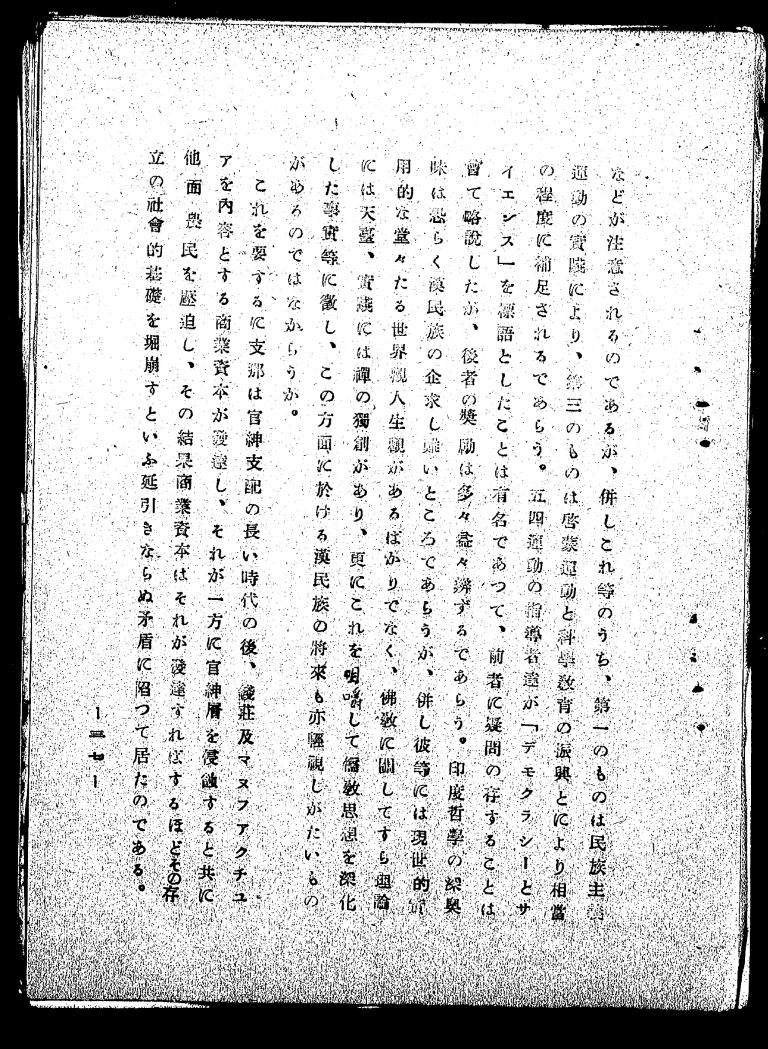 などが注意されるのであるが、併しこれ等のうち、第一のものは民族主義
運動の實踐により、第三のものは啓蒙運動と科學教育の振興とにより相當
の程度に補足されるであらう。五四運動の指導者達が「デモクラシーとサ
イエンス」を標語としたことは有名であつて、前者に疑問の存することは
曾て略說したが、後者の奬勵は多々益々辨ずるであらう。印度哲學の深奧
味は恐らく漢民族の企求し難いところであらうが、併し彼等には現世的實
用的な堂々たる世界觀人生觀があるばかりでなく、佛敎に關してすら理論
には天臺、實踐には禪の獨創があり、更にこれを咀嚼して儒敎思想を深化
した事實等に徵し、この方面に於ける漢民族の將來も亦輕視しがたいもの
があるのではなからうか。
これを要するに支那は官紳支配の長い時代の後、錢莊及マヌフアクチユ
アを內容とする商業資本が發達し、それが一方に官紳層を侵蝕すると共に
他面農民を壓迫し、その結果商業資本はそれが發達すればするほどその存
立の社會的基礎を堀崩すといふ延引きならぬ矛盾に陷つて居たのである。